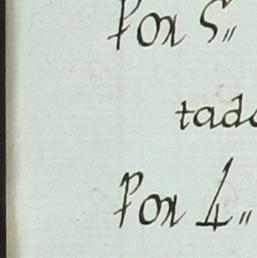 Por 5„
tad
Por 4„